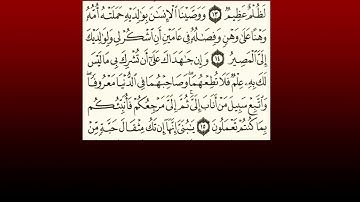 لَظُلْمٌ عَظِيمٌ ١٣ وَوَصَّيْنَا ٱلْإِنسَٰنَ بِوَٰلِدَيْهِ حَمَلَتْهُ أُمُّهُۥ
وَهْنًا عَلَىٰ وَهْنٍ وَفِصَٰلُهُۥ فِى عَامَيْنِ أَنِ ٱشْكُرْ لِى وَلِوَٰلِدَيْكَ
إِلَىَّ ٱلْمَصِيرُ ١٤ وَإِن جَٰهَدَاكَ عَلَىٰٓ أَن تُشْرِكَ بِى مَا لَيْسَ
لَكَ بِهِۦ عِلْمٌ فَلَا تُطِعْهُمَا وَصَاحِبْهُمَا فِى ٱلدُّنْيَا مَعْرُوفًا
وَٱتَّبِعْ سَبِيلَ مَنْ أَنَابَ إِلَىَّ ثُمَّ إِلَىَّ مَرْجِعُكُمْ فَأُنَبِّئُكُم
بِمَا كُنتُمْ تَعْمَلُونَ ١٥ يَٰبُنَىَّ إِنَّهَآ إِن تَكُ مِثْقَالَ حَبَّةٍ مِّنْ